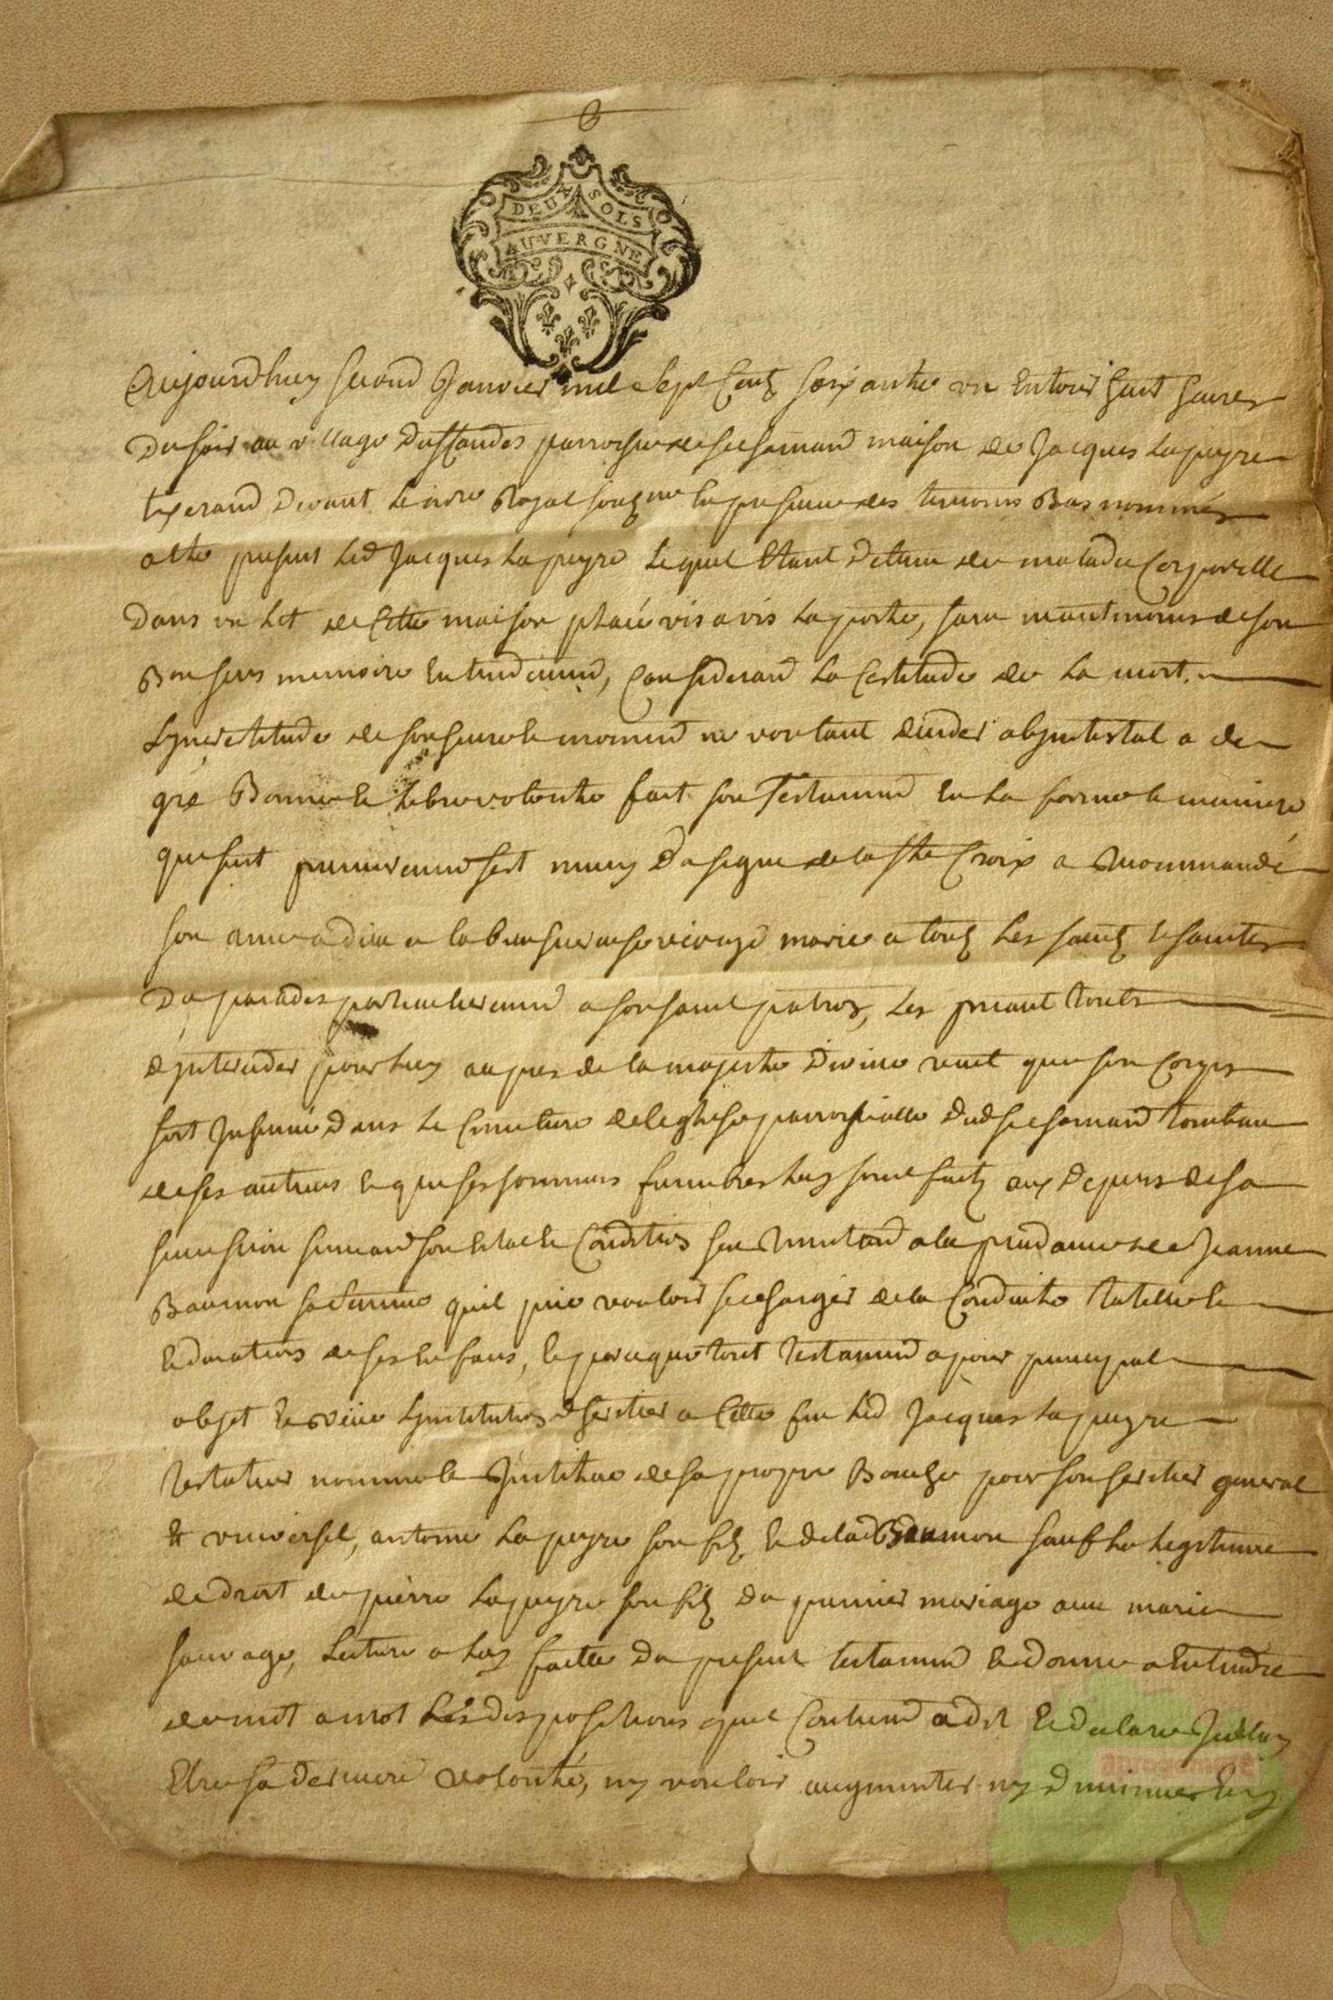 DEUX SOLS
AUVERGNE
Aujourdhuy second Janvier mil sept Centz soixante un Environ huit heures
Du soir au village parroisse de maison de Jacques Lapeyre
tixerand Devant Le nore Royal soubzne En presence des temoins Bas nommés
a este present Led Jacques Lapeyre Lequel Etant Detenu de maladie Corporelle
Dans un Lit de Cette maison placé vis a vis La porte, sain neantmoins de son
Bon sens memoire Entendement, Considerant La Certitude de La mort
Lyncertitude de son heure le moment ne voulant deceder abyntestat a de
gré Bonne et Libre volonté fait son Testament En La forme et maniere
que suit premierement sest muny Du signe de la ste Croix a recommandé
son ame a dieu a la bien heureuse vierge marie a toutz Les saintz et saintes
Du paradis particulierement a son saint patron, Les priant touts
dynterceder pour Luy aupres de la majesté Divine veut que son Corps
soit Inhumé Dans Le Cimetiere de leglise parroissialle dud tombeau
de ses autheurs et que ses honneurs funebres Luy soint faitz aux Depens de sa
succession suivant son Estat et Condition sen remettant a la prudance de Jeanne
Baumon sa femme quil prie vouloir se charger de la Conduite tutelle et
Education de ses Enfans, et parceque tout testament a pour principal
objet et Lynstitution dheritier a Cette fin Led Jacques Lapeyre
testateur nomme et Institue de sa propre Bouche pour son heritier general
et universel, antoine Lapeyre son filz et de lad Baumon sauf La Legitime
de droit de pierre Lapeyre son filz du premier mariage avec marie
sauvage, Lecture a Luy faitte Du present testament et donné a Entendre
de mot a mot Les dispositions quil Contient a dit et declaré Jcelluy
Etre sa derniere volonté, ny vouloir augmenter ny diminuer